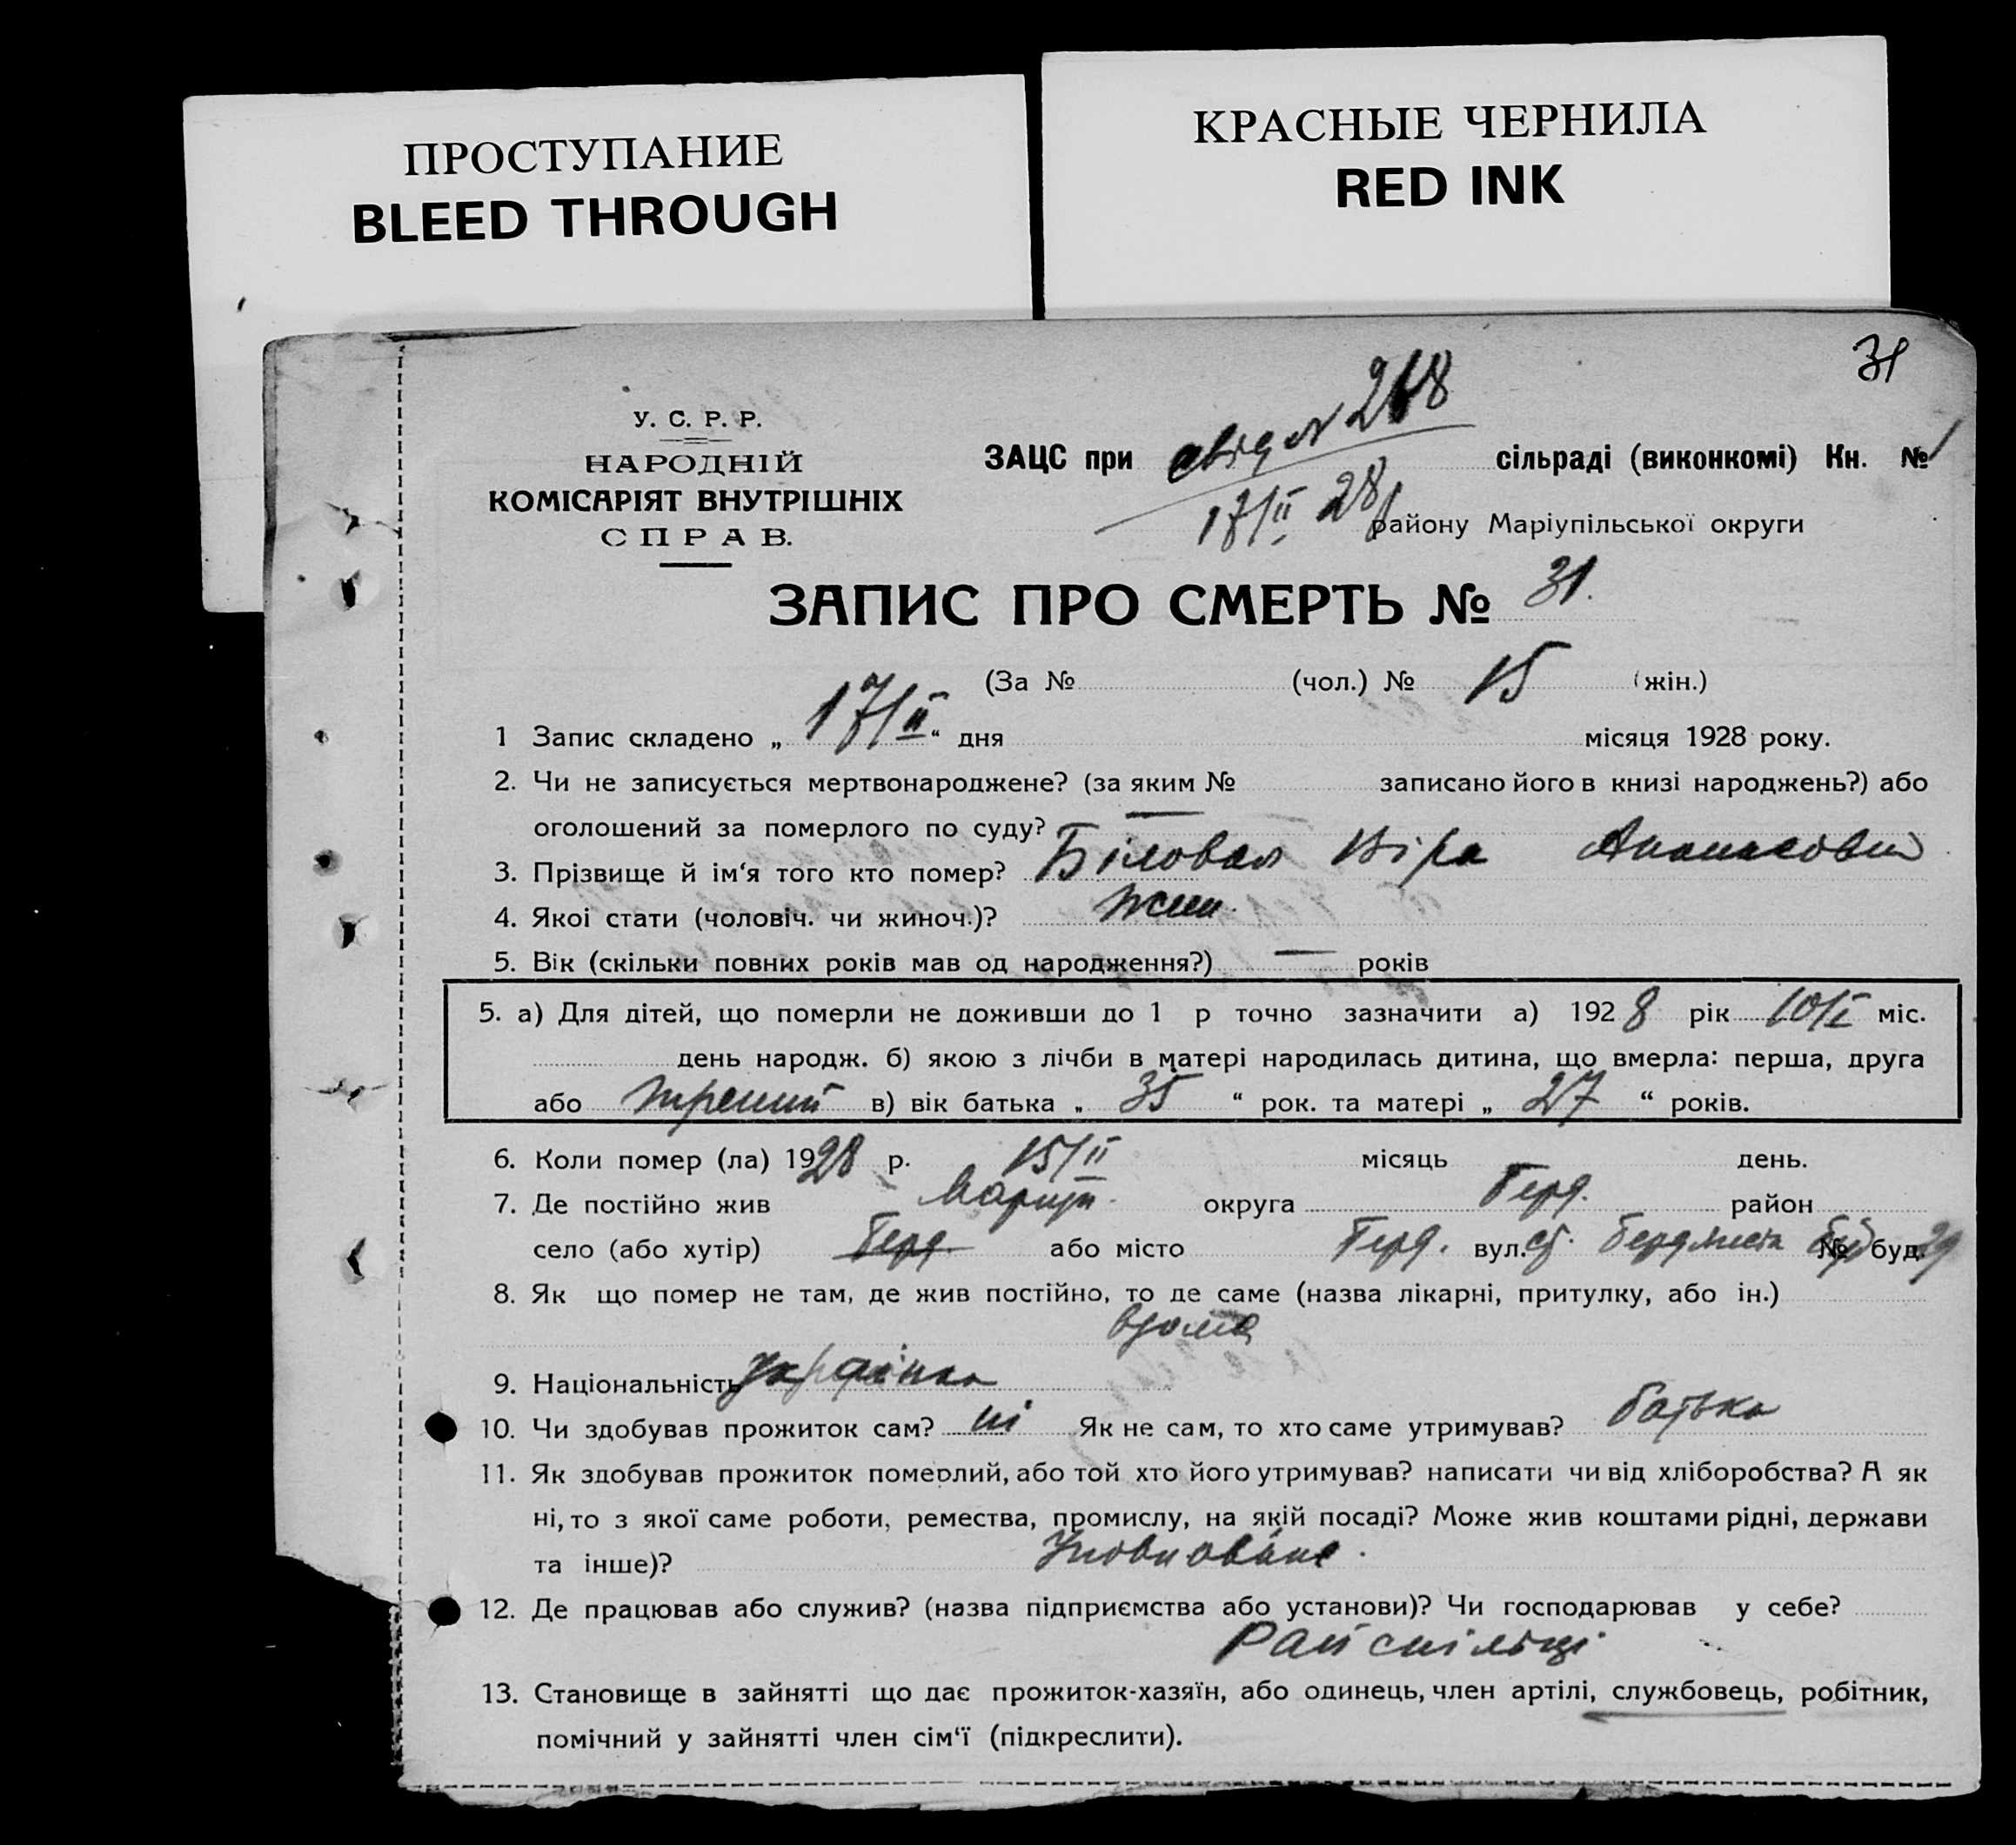 ПРОСТУПАНИЕ
BLEED THROUGH
КРАСНЫЕ ЧЕРНИЛА
RED INK
31
У. С. Р. Р.
НАРОДНІЙ
КОМІСАРІЯТ ВНУТРІШНІХ
СПРАВ.
ЗАЦС при сільраді (виконкомі) Кн. № 1
17/II 28 району Маріупільської округи
ЗАПИС ПРО СМЕРТЬ № 31.
(За № (чол.) № 15 (жін.)
1 Запис складено „ 17/II “ дня місяця 1928 року.
2. Чи не записується мертвонароджене? (за яким № записано його в книзі народжень?) або
оголошений за померлого по суду? —
3. Прізвище й ім‘я того кто помер? Біловол Віра
4. Якої стати (чоловіч. чи жиноч.)? жин.
5. Вік (скільки повних років мав од народження?) — років
5. а) Для дітей, що померли не доживши до 1 р точно зазначити а) 1928 рік 10/I міс.
день народж. б) якою з лічби в матері народилась дитина, що вмерла: перша, друга
або в) вік батька „ 35 “ рок. та матері „ 27 “ років.
6. Коли помер (ла) 1928 р. 15/II місяць день.
7. Де постійно жив Маріуп. округа Берд. район
село (або хутір) Берд. або місто Берд. вул. № буд. 29
8. Як що помер не там, де жив постійно, то де саме (назва лікарні, притулку, або ін.)
вдома
9. Національність Українка
10. Чи здобував прожиток сам? ні Як не сам, то хто саме утримував? батько
11. Як здобував прожиток померлий, або той хто його утримував? написати чи від хліборобства? А як
ні, то з якої саме роботи, ремества, промислу, на якій посаді? Може жив коштами рідні, держави
та інше)?
12. Де працював або служив? (назва підприємства або установи)? Чи господарював у себе?
Райспілці
13. Становище в зайнятті що дає прожиток-хазяїн, або одинець, член артілі, службовець, робітник,
помічний у зайнятті член сім‘ї (підкреслити).